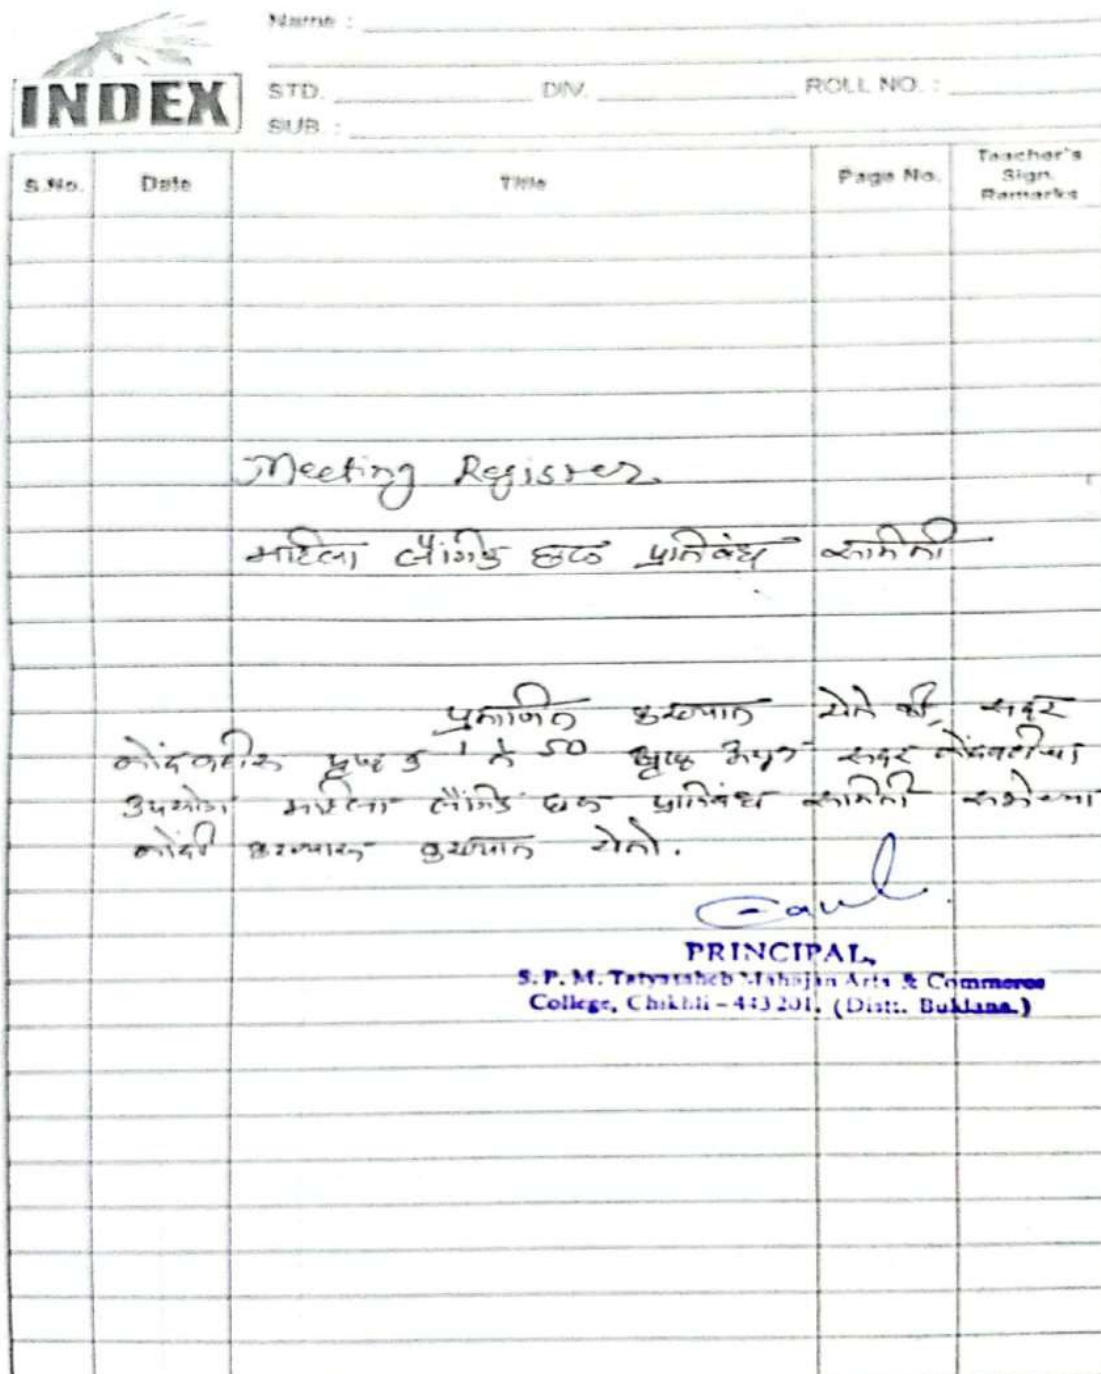 Name :
INDEX
STD. DIV. ROLL NO. :
SUB :
S.No. Date Title Page No. Teacher's Sign. Remarks
Meeting Register
महिला लैंगिक छळ प्रतिबंध समिती
प्रमाणित करण्यात येते की, सदर
नोंदवहीस पृष्ठ क्र 1 ते 50 पृष्ठ असून सदर नोंदवहीचा
उपयोग महिला लैंगिक छळ प्रतिबंध समिती सभेच्या
नोंदी करण्यास करण्यात येतो.
PRINCIPAL,
S. P. M. Tatyasaheb Mahajan Arts & Commerce
College, Chikhli - 443201. (Distt. Buldana.)